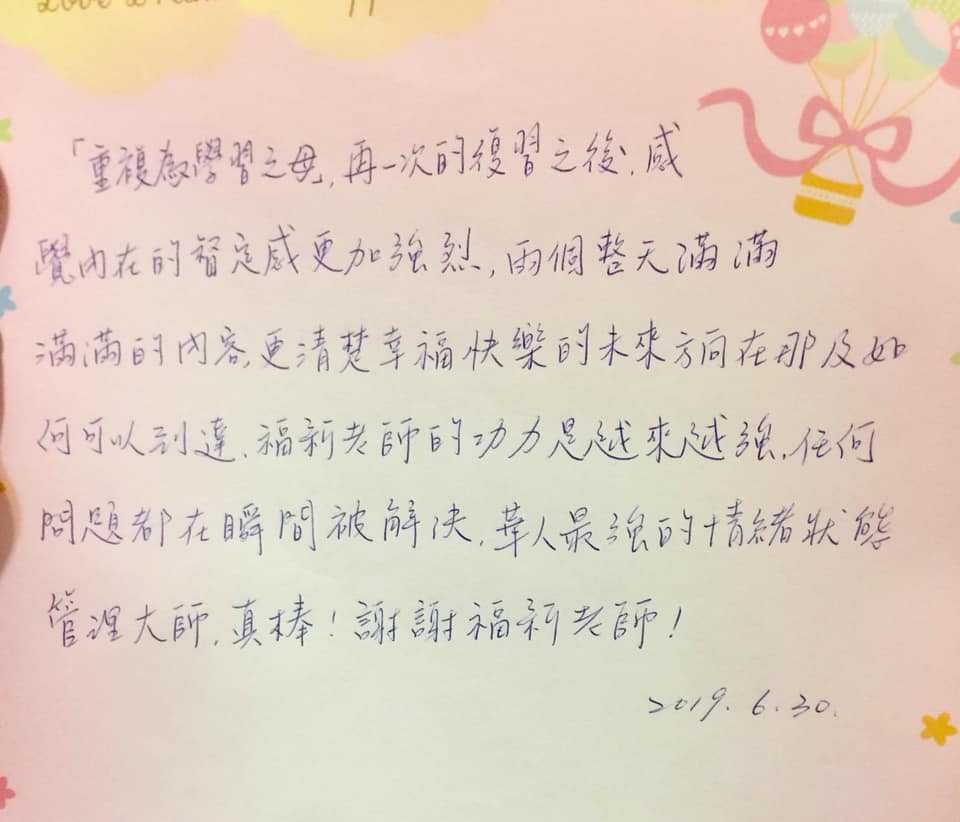 「重複為學習之母,再一次的復習之後,感
覺內在的穩定感更加強烈,兩個整天滿滿
滿滿的內容,更清楚幸福快樂的未來方向在那及如
何可以到達、福新老師的功力是越來越強,任何
問題都在瞬間被解決,華人最強的情緒狀態
管理大師,真棒!謝謝福新老師!
2019.6.30.